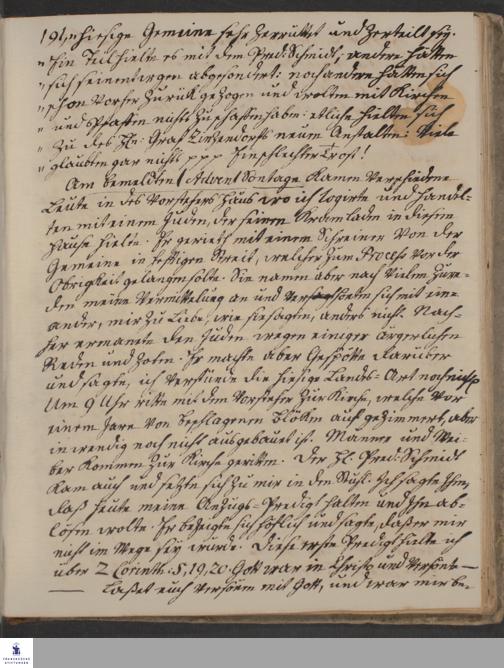 191, „hiesige Gemeine sehr zerrüttet und zertheilt sey.
„ Ein Teil hielte es mit dem Pred: Schmidt; andere hätten
„ sich seinetwegen abgesondert: noch andere hätten sich
„ schon vorher zurük gezogen und wolten mit Kirchen
„ und Pfaffen nichts zu schaffen haben: etliche hielten sich
„ zu des Hn: Graf Zinzendorfs neuen Anstalten: Viele
„ glaubten gar nichts ppp Ein schlechter Trost!
Am bemeldten Advent Sontage kamen verschiedene
Leute in des Vorstehers Haus wo ich logirte und handel-
ten mit einem Juden, der seinen Kramladen in diesem
Hause hielte. Er gerieth mit einem Schreiner von der
Gemeine in heftigen Streit, welcher zum Process vor der
Obrigkeit gelangen solte. Sie namen aber nach vielem Zure-
den meine Vermittelung an und versöhnten sich mit ein-
ander, mir zu Liebe, wie sie sagten, anders nicht. Nach-
her ermante den Juden wegen einiger ärgerlichen
Reden und Zoten. Er machte aber Gespötte darüber
und sagte, ich verstünde die hiesige Lands-Art noch nicht
Um 9 Uhr ritte mit dem Vorsteher zur Kirche, welche vor
einem Jare von beschlagenen Blöken auf gezimmert, aber
inwendig noch nicht ausgebauet ist. Männer und Wei-
ber kommen zur Kirche geritten. Der H. Pred: Schmidt
kam auch und setzte sich zu mir in den Stul. Ich sagte Ihm,
daß heute meine Anzugs-Predigt halten und Ihn ab-
lösen wolte. Er bezeigte sich höflich und sagte, daß er mir
nicht im Wege sein würde. Diese erste Predigt hielte ich
über 2 Corinth: 5, 19, 20. Gott war in Christo und versönte —
— Lasset euch versönen mit Gott, und war mir be-
FRANCKESCHE
STIFTUNGEN